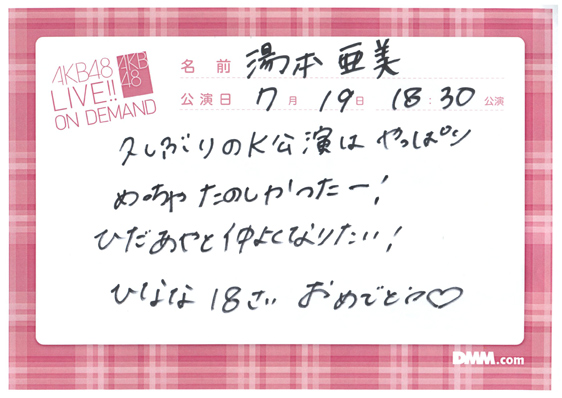 AKB48
LIVE!!
ON DEMAND
AKB
48
名 前 湯本 亜美
公演日 7月 19日 18:30 公演
久しぶりのK公演は やっぱり
めっちゃ たのしかったー!
ひだあやと仲よくなりたい!
ひなな 18さい おめでとう♡
DMM.com